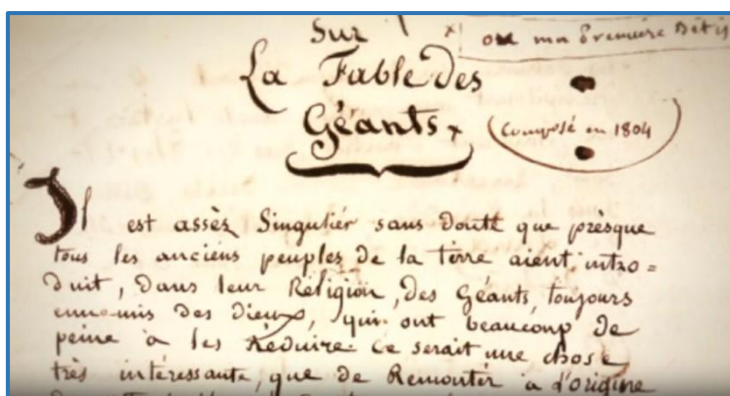 Sur
ou ma Première
La Fable des
Géants
(Composé en 1804
Il est assèz Singuliér sans doutte que prèsque
tous les anciéns peuples de la tèrre aient intro=
duit, dans leur Réligion, des Géants, toujours
ennemis des dieux, qui ont beaucoup de
peine à les Réduire. Ce serait une chose
très intéressante, que de Remontér à l'origine